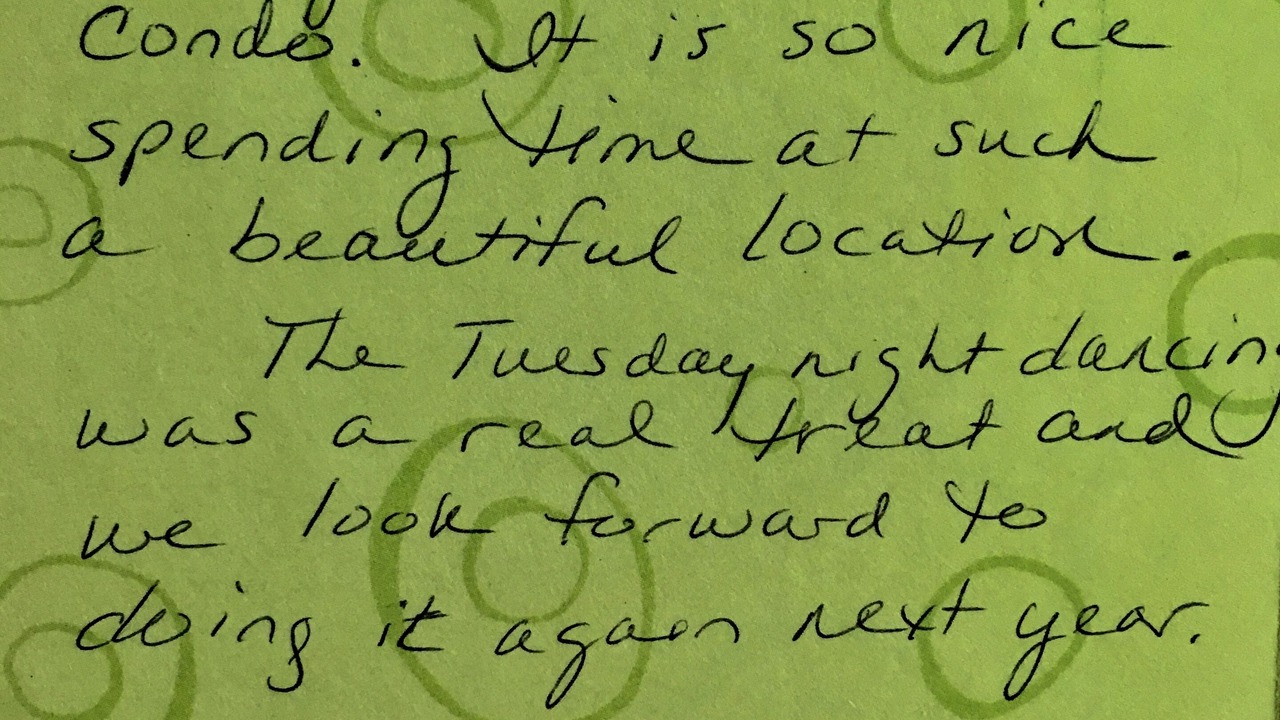 Condo. It is so nice
spending time at such
a beautiful location.
The Tuesday night dancing
was a real treat and
we look forward to
doing it again next year.